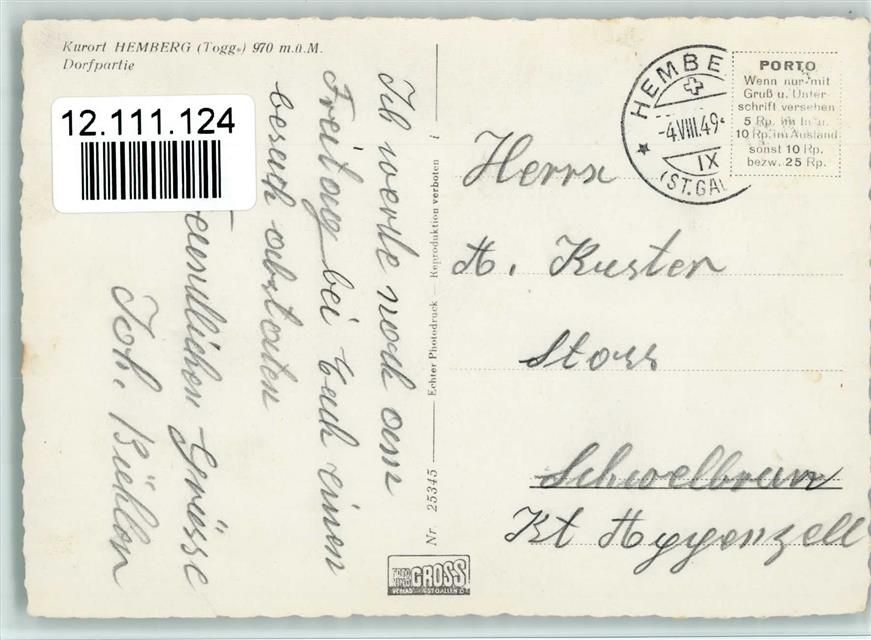 Kurort HEMBERG (Togg.) 970 m.ü.M.
Dorfpartie
12.111.124
Ich werde noch am
Freitag bei Euch einen
besuch abstaten
Feundlichen Grüsse
Joh.
Nr. 25345 — Echter Photodruck — Reproduktion verboten i
HEMBE
-4.VIII.49
IX
(ST.GAL
PORTO
Wenn nur mit
Gruß u. Unter-
schrift versehen
5 Rp. im In u.
10 Rp. im Ausland
sonst 10 Rp.
bezw. 25 Rp.
Herrn
A. Kuster
Stoss
Schwelbrun
Kt Appenzell
FOTO
GROSS
VERLAG ST.GALLEN